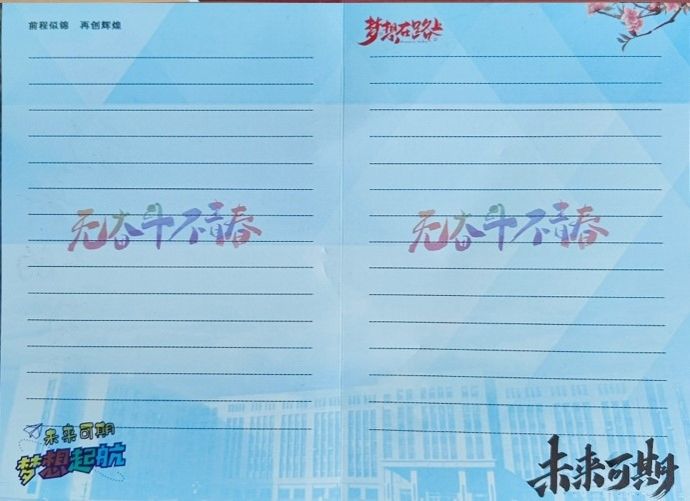 前程似锦 再创辉煌
无奋斗不青春
未来可期
梦想起航
梦想在路上
无奋斗不青春
未来可期